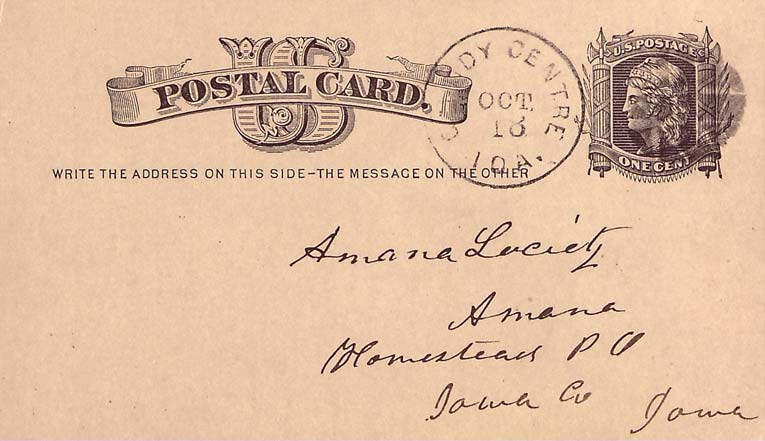 US
POSTAL CARD.
U.S. POSTAGE
ONE CENT
CENTRE
OCT.
IOA.
WRITE THE ADDRESS ON THIS SIDE–THE MESSAGE ON THE OTHER
Amana Society
Amana
Homestead P O
Iowa Co Iowa